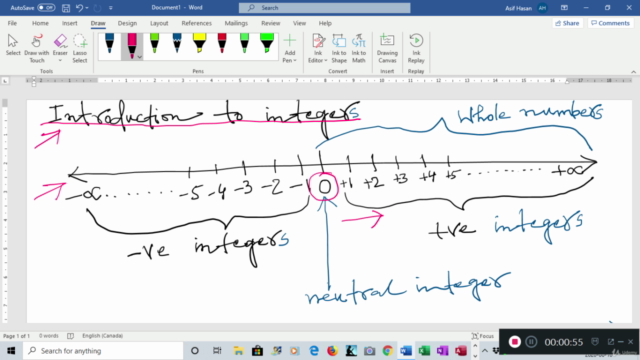 AutoSave Off Document1 - Word Asif Hasan AH
File Home Insert Draw Design Layout References Mailings Review View Help Search Share Comments
Select Draw with Touch Eraser Lasso Select Add Pen Ink to Shape Ink to Math Drawing Canvas Ink Replay
Tools Pens Convert Insert Replay
Introduction to integers
Whole numbers
-∞ ........ -5 -4 -3 -2 -1 0 +1 +2 +3 +4 +5 ......... +∞
-ve integers
+ve integers
neutral integer
Page 1 of 1 0 words English (Canada) Focus
Type here to search
00:00:55